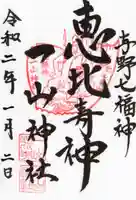 与野七福神
恵比寿神
一山神社
令和二年一月二日